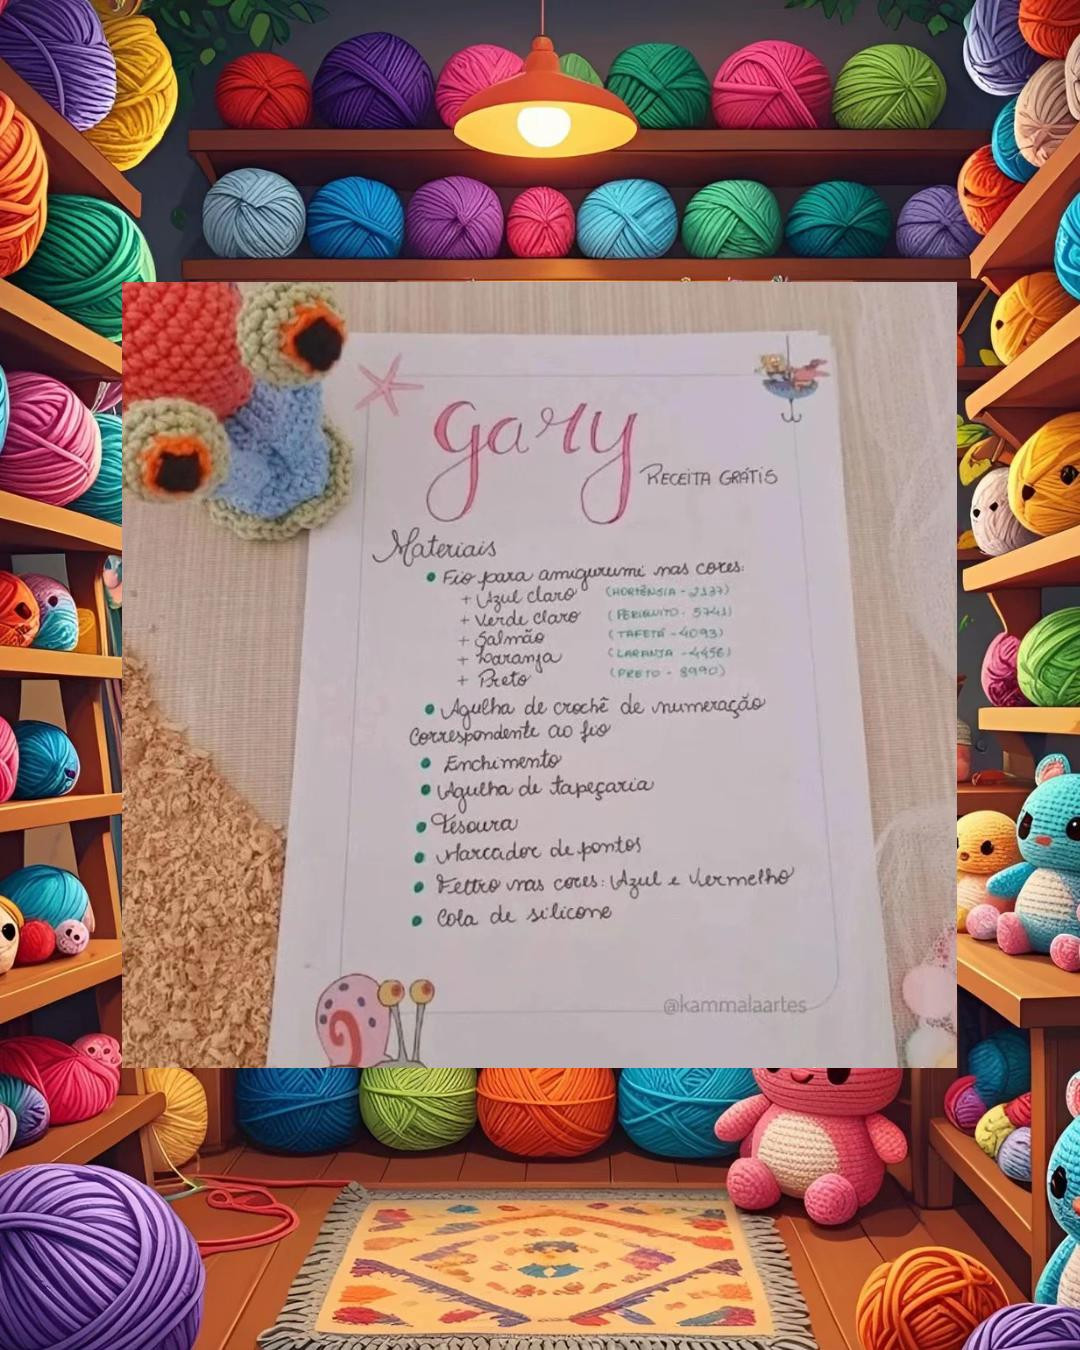 gary
RECEITA GRÁTIS
Materiais
• Fio para amigurumi nas cores:
+ Azul claro (HORTÊNSIA - 2137)
+ Verde claro (PERIQUITO - 5741)
+ Salmão (TAFETÁ - 4093)
+ Laranja (LARANJA - 4456)
+ Preto (PRETO - 8990)
• Agulha de crochê de numeração
Correspondente ao fio
• Enchimento
• Agulha de tapeçaria
• Tesoura
• Marcador de pontos
• Feltro nas cores: Azul e Vermelho
• Cola de silicone
@kammalaartes